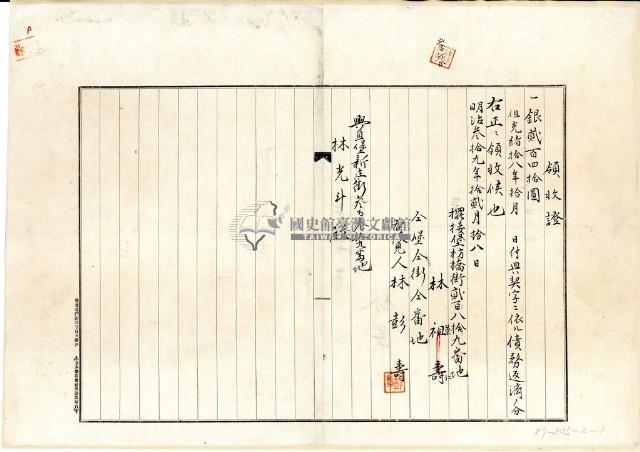 領收證
一銀貳百四拾圓
但光緒拾八年拾月　日付典契字ニ依ル債務返濟分
右正ニ領收候也
明治參拾九年拾貳月拾八日
擺接堡枋橋街貳百八拾九番地
林祖壽
仝堡仝街仝番地
後見人林彭壽
興直堡新庄街參百
九番地
林光斗
國史館臺灣文獻館
TAIWAN HISTORICA
87-805-2-1